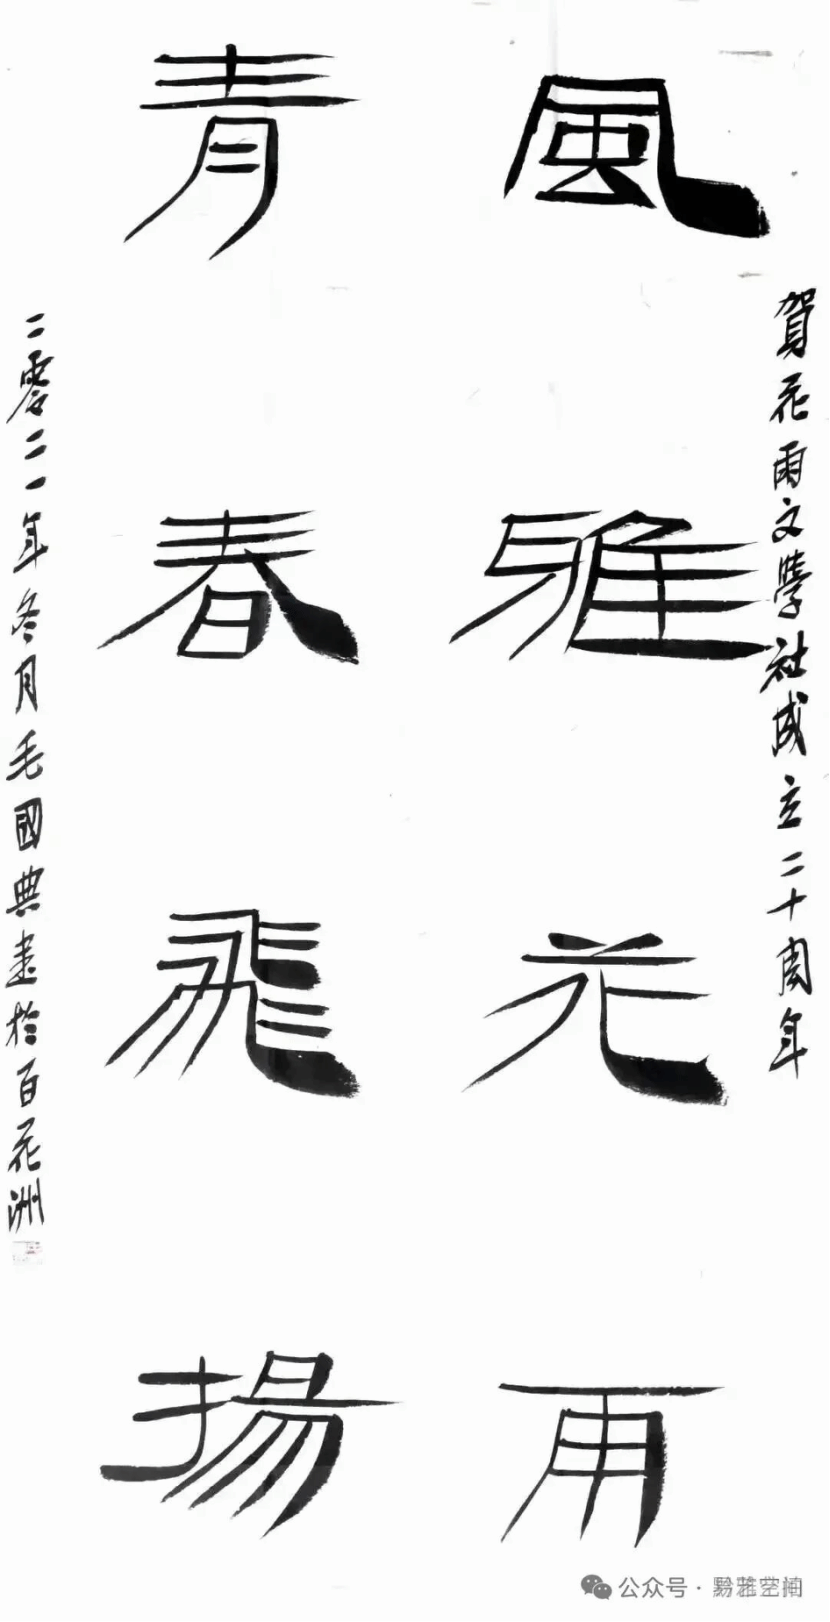 賀花雨文學社成立二十周年
風雅花雨
青春飛揚
二零二一年冬月毛國典書於百花洲
公众号·黔雅空间